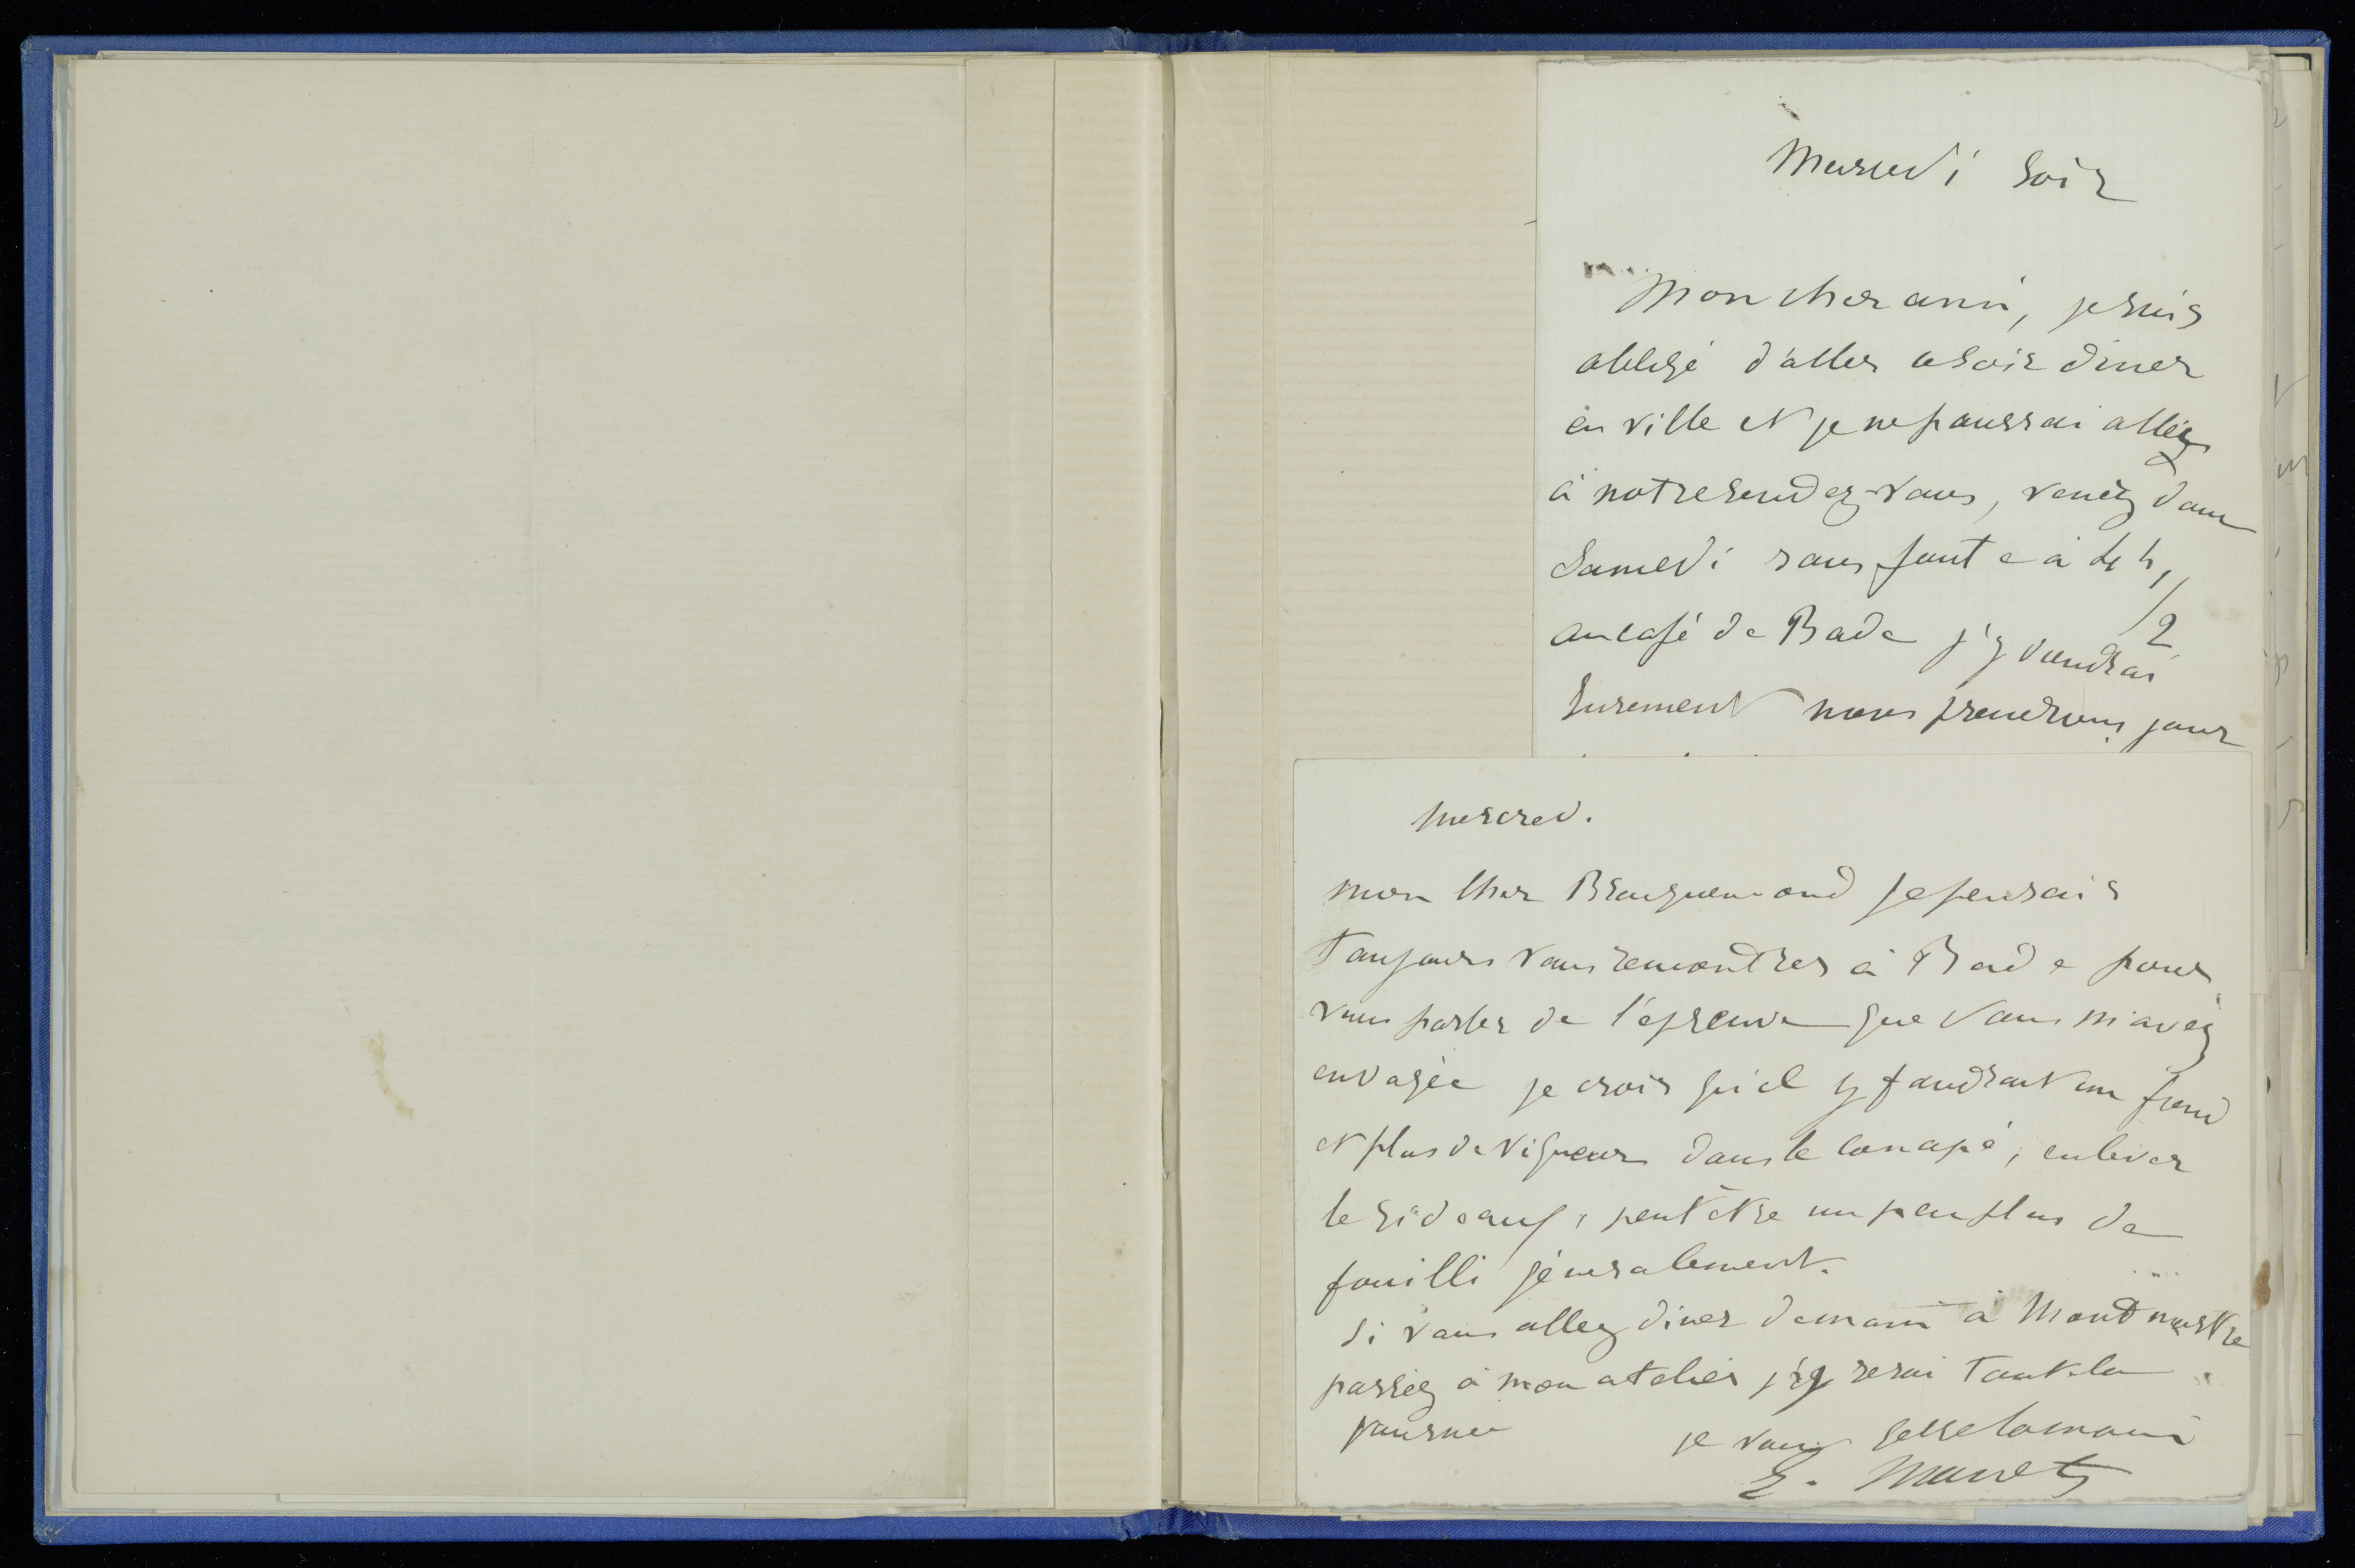 Mercredi soir
Mon cher ami, je suis
obligé d'aller ce soir diner
en ville et je ne pourrai aller
à notre rendez-vous, venez donc
Samedi sans faute à 4 h 1/2
au café de Bade j'y viendrai
surement nous prendrons jour
mercred.
mon cher Bracquemond je pensais
toujours vous rencontrer à Bade pour
vous parler de l'épreuve que vous m'avez
envoyée je crois qu'il y faudrait un fond
et plus de vigueur dans le canapé, enlever
le rideau, peut être un peu plus de
fouilli géneralement.
si vous allez diner demain à Montmartre
passez à mon atelier j'y serai toute la
journée
je vous serre la main
E. Manet